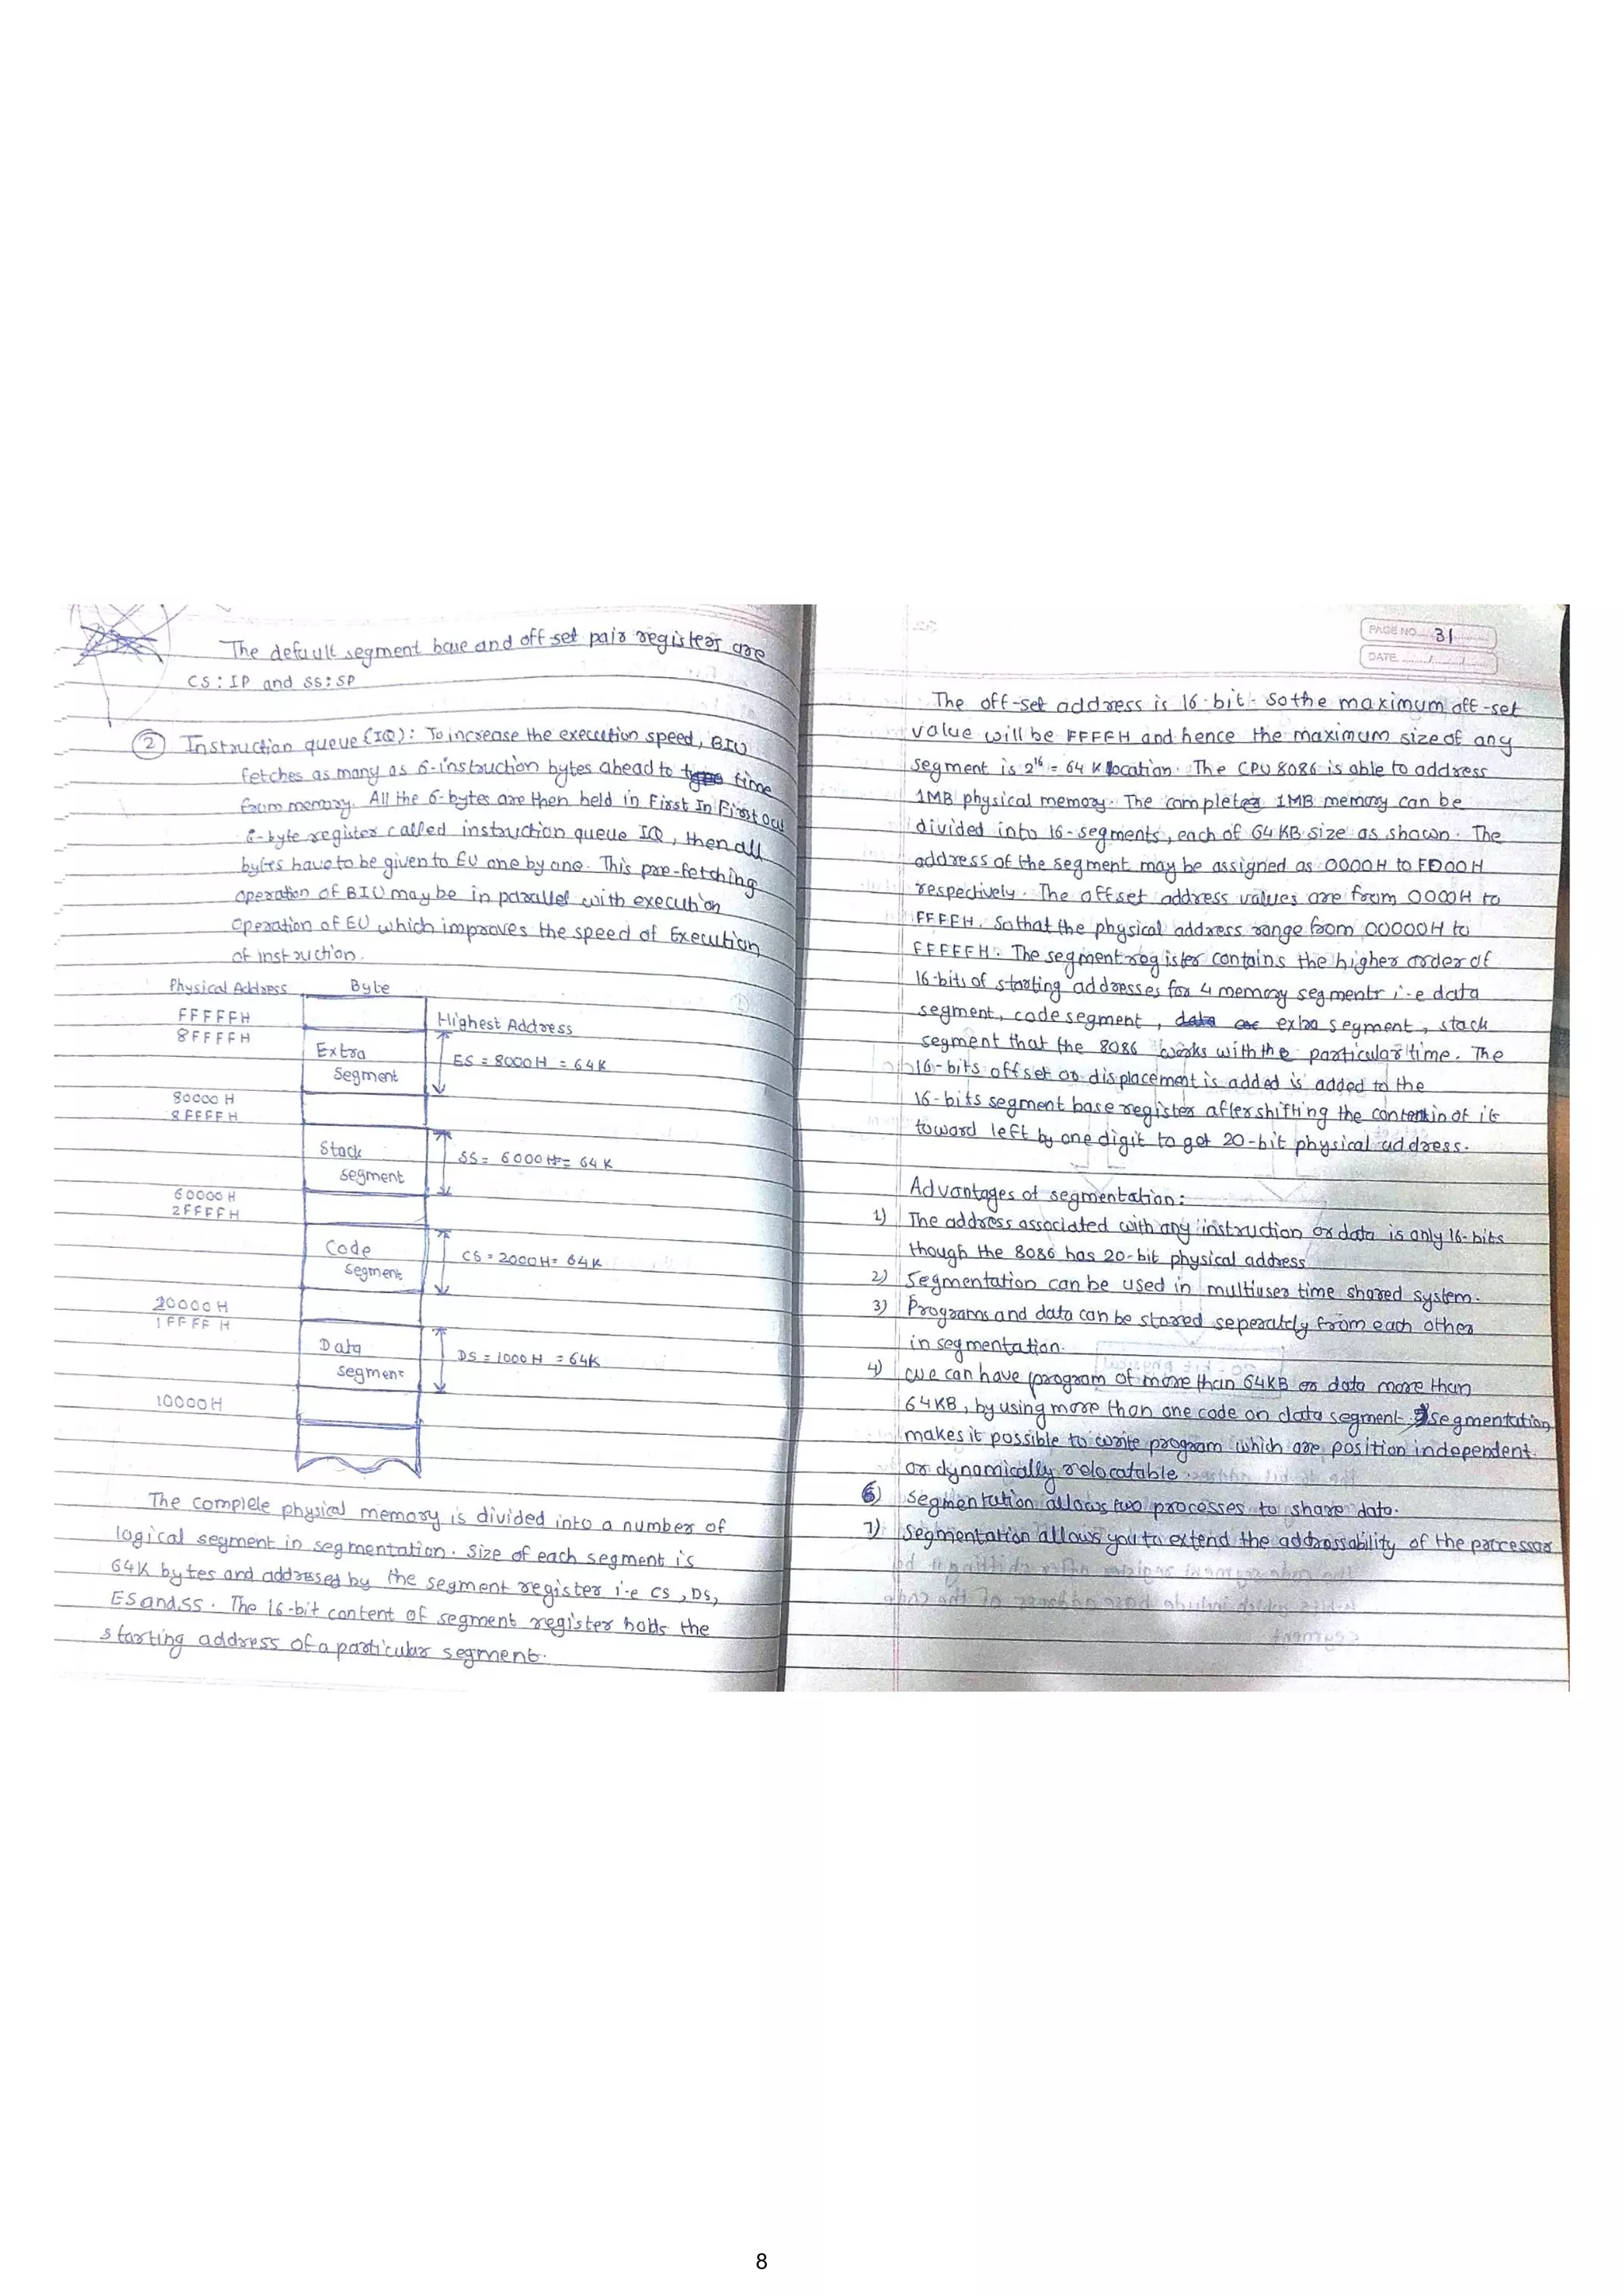 The default segment base and off-set pair registers are
CS : IP and SS : SP
② Instruction queue (IQ): To increase the execution speed, BIU
fetches as many as 6-instruction bytes ahead to time
from memory. All the 6-bytes are then held in First In First Out
6-byte register called instruction queue IQ, then all
bytes have to be given to EU one by one. This pre-fetching
operation of BIU may be in parallel with execution
operation of EU which improves the speed of Execution
of instruction.
Physical Address Byte
FFFFFH Highest Address
8FFFFH
Extra ES = 8000H = 64K
Segment
80000 H
8FFFFH
Stack SS = 6000H = 64K
segment
60000 H
2FFFFH
Code CS = 2000H = 64K
segment
20000 H
1FFFFH
Data DS = 1000H = 64K
segment
10000H
The complete physical memory is divided into a number of
logical segment in segmentation. Size of each segment is
64K bytes and addressed by the segment register i.e CS, DS,
ES and SS. The 16-bit content of segment register holds the
starting address of a particular segment.
PAGE NO. 31
DATE
The off-set address is 16-bit. So the maximum off-set
value will be FFFFH and hence the maximum size of any
segment is 2¹⁶ = 64 K location. The CPU 8086 is able to address
1MB physical memory. The complete 1MB memory can be
divided into 16-segments, each of 64KB size as shown. The
address of the segment may be assigned as 0000H to F000H
respectively. The offset address values are from 0000H to
FFFFH. So that the physical address range from 00000H to
FFFFFH. The segment register contains the higher order of
16-bits of starting addresses for 4 memory segments i.e data
segment, code segment, extra segment, stack
segment that the 8086 works with the particular time. The
16-bits offset or displacement is added is added to the
16-bits segment base register after shifting the of it
toward left by one digit to get 20-bit physical address.
Advantages of segmentation:
1) The address associated with any instruction or data is only 16-bits
though the 8086 has 20-bit physical address
2) Segmentation can be used in multiuser time shared system.
3) Programs and data can be stored seperately from each other
in segmentation.
4) We can have program of more than 64KB or data more than
64KB, by using more than one code on data segment. segmentation
makes it possible to write program which are position independent
or dynamically relocatable.
6) Segmentation allows two processes to share data.
7) Segmentation allows you to extend the addressability of the processor
8